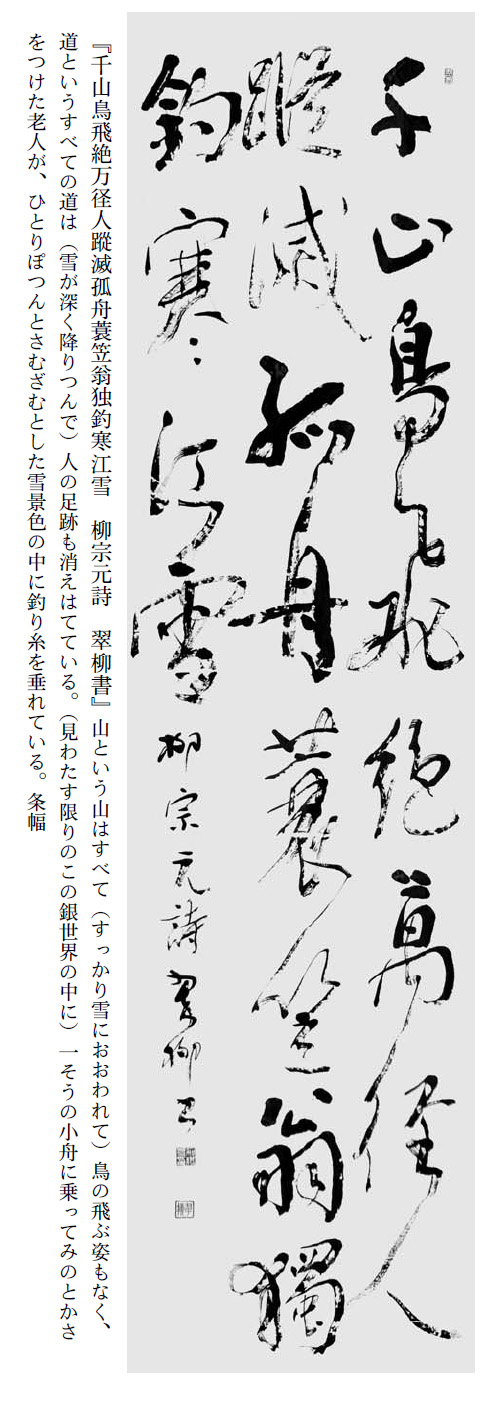 千山鳥飛絶萬径人
蹤滅孤舟蓑笠翁獨
釣寒江雪 柳宗元詩 翠柳書
『千山鳥飛絶万径人蹤滅孤舟蓑笠翁独釣寒江雪 柳宗元詩 翠柳書』山という山はすべて（すっかり雪におおわれて）鳥の飛ぶ姿もなく、
道というすべての道は（雪が深く降りつんで）人の足跡も消えはてている。（見わたす限りのこの銀世界の中に）一そうの小舟に乗ってみのとかさ
をつけた老人が、ひとりぽつんとさむざむとした雪景色の中に釣り糸を垂れている。条幅